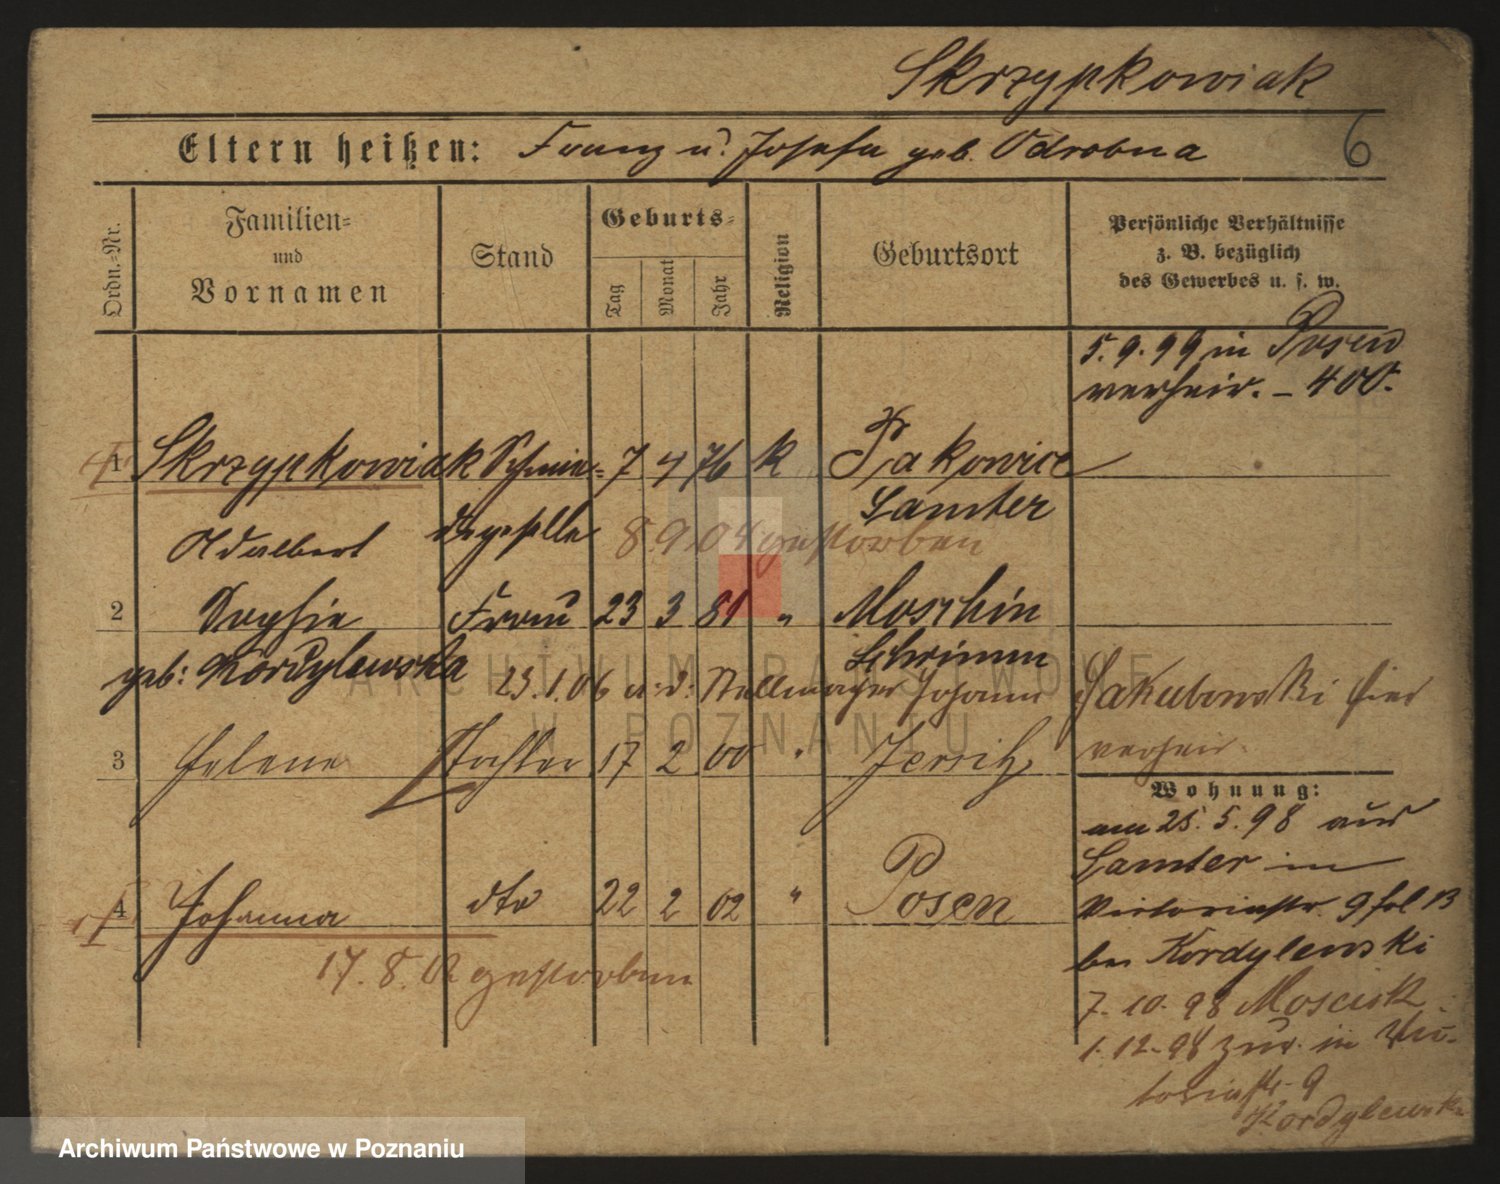 Skrzypkowiak
Eltern heißen: Franz u. Josefa geb. Odrobna
6
Ordn.-Nr.
Familien-
und
Vornamen
Stand
Geburts-
Tag
Monat
Jahr
Religion
Geburtsort
Persönliche Verhältnisse
z. B. bezüglich
des Gewerbes u. s. w.
5.9.99 in Posen
verheir. – 400.
1 Skrzypkowiak Schmie- 7 4 76 K Piakowice
Samter
Adalbert degeselle 8 9 04 gestorben
2 Sophie Frau 23 3 81 " Moschin
Schrimm
geb: Kordylewska
23.1.06 m. d. Stellmacher Johann Jakubowski hier
verheir.
3 Helene Tochter 17 2 00 " Jersitz
4 Johanna dto 22 2 02 " Posen
17. 8. 02 gestorben
Wohnung:
am 25.5.98 aus
Samter in
Victoriastr. 9 bei
Kordylewski
7.10.98
1.12.98 zur. in Vic-
toriastr. 9
Kordylewski
ARCHIWUM PAŃSTWOWE
W POZNANIU
Archiwum Państwowe w Poznaniu